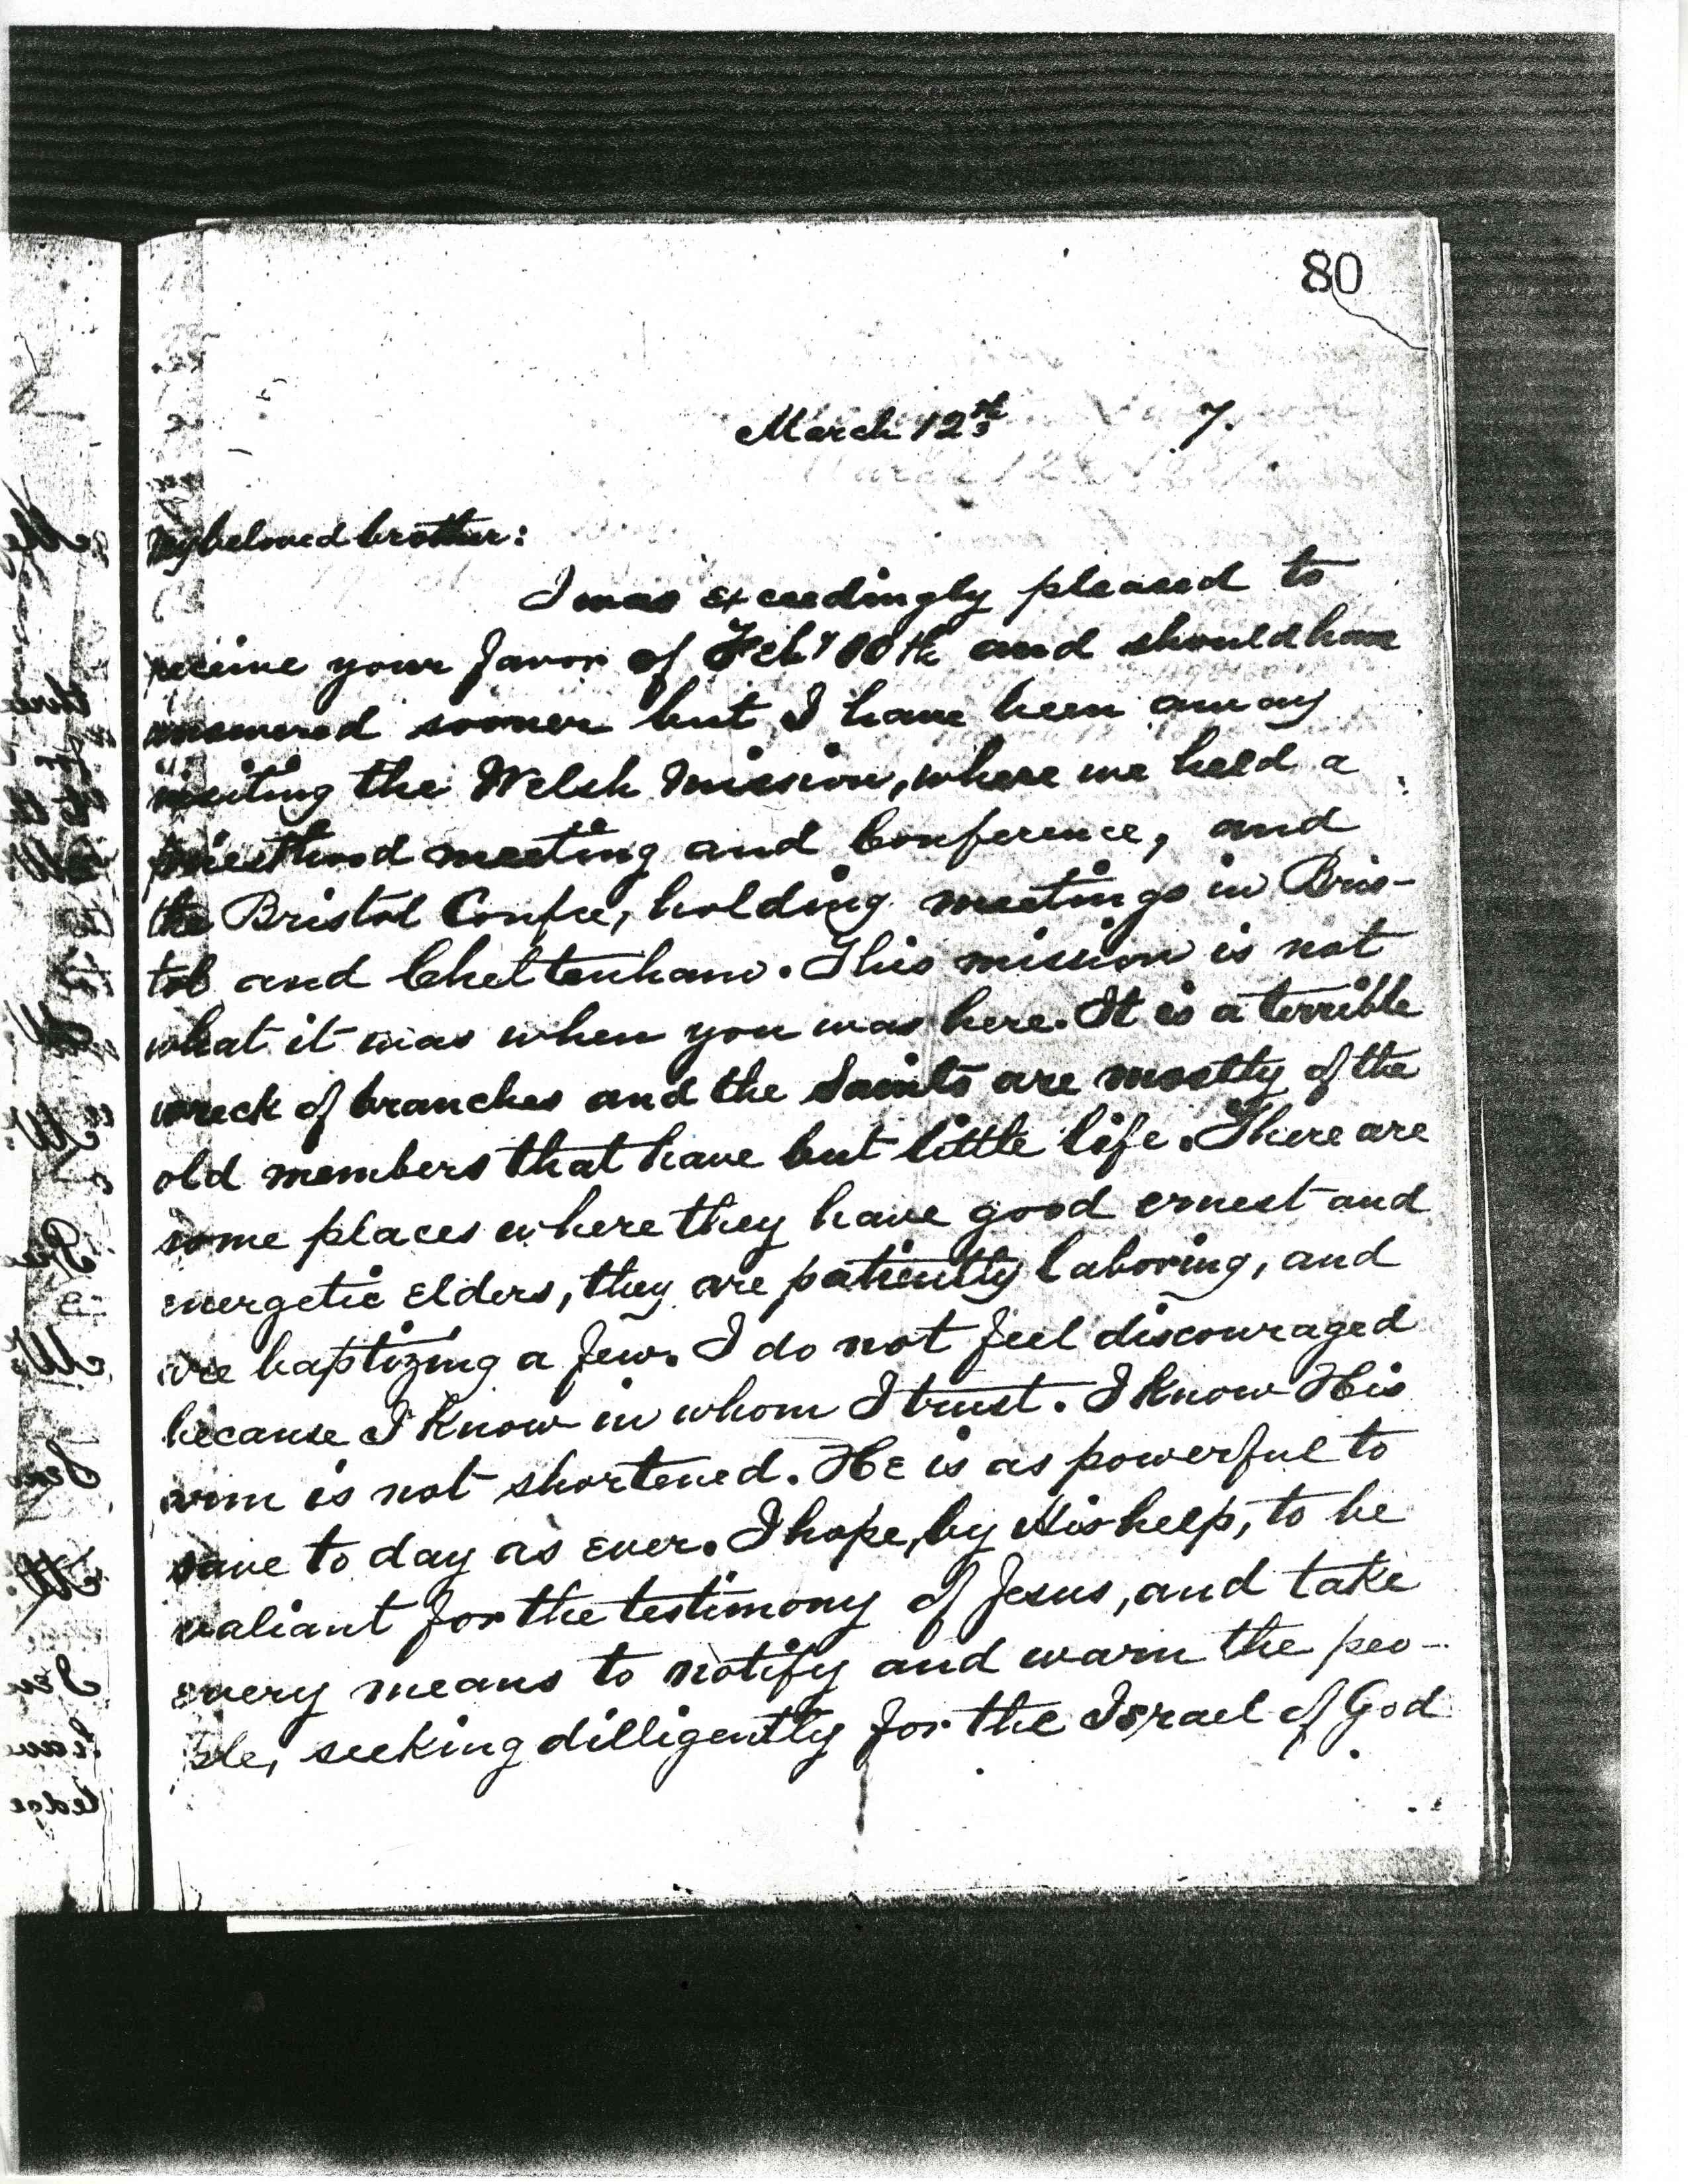 80
March 12th 7.
My beloved brother:
I was exceedingly pleased to
receive your favor of Feby 10th and should have
answered sooner but I have been away
visiting the Welsh Mission, where we held a
priesthood meeting and Conference, and
the Bristol Confce, holding meetings in Bris-
tol and Cheltenham. This mission is not
what it was when you was here. It is a terrible
wreck of branches and the Saints are mostly of the
old members that have but little life. There are
some places where they have good ernest and
energetic Elders, they are patiently laboring, and
are baptizing a few. I do not feel discouraged
because I know in whom I trust. I know His
arm is not shortened. He is as powerful to
save to day as ever. I hope, by His help, to be
valiant for the testimony of Jesus, and take
every means to notify and warn the peo-
ple, seeking dilligently for the Israel of God